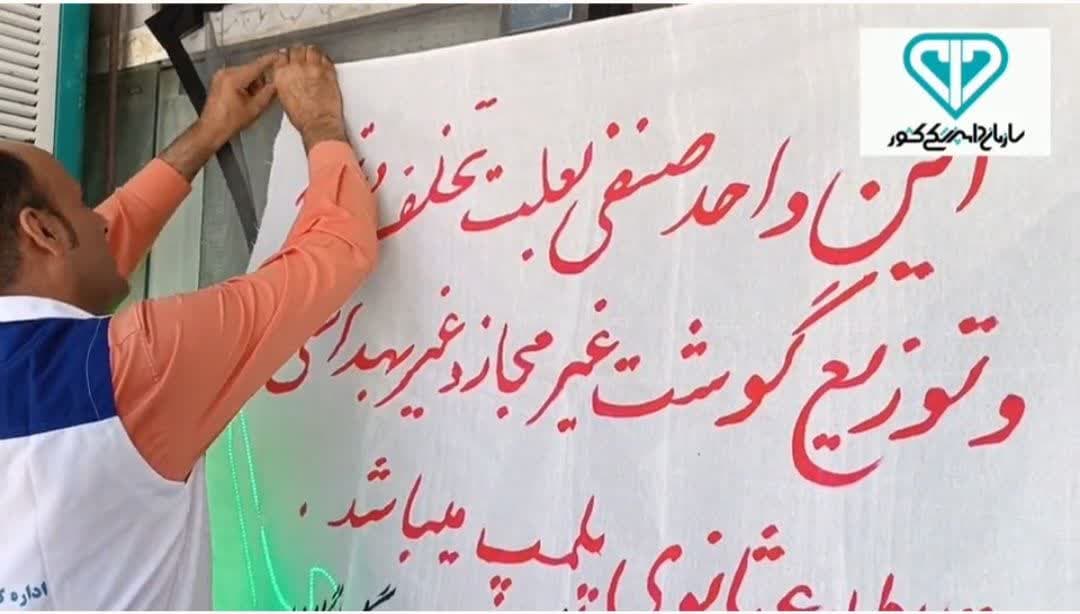 سازمان دامپزشکی کشور
این واحد صنفی بعلت تخلف
و توزیع گوشت غیر مجاز و غیر بهداشتی
ثانوی پلمپ میباشد.
اداره